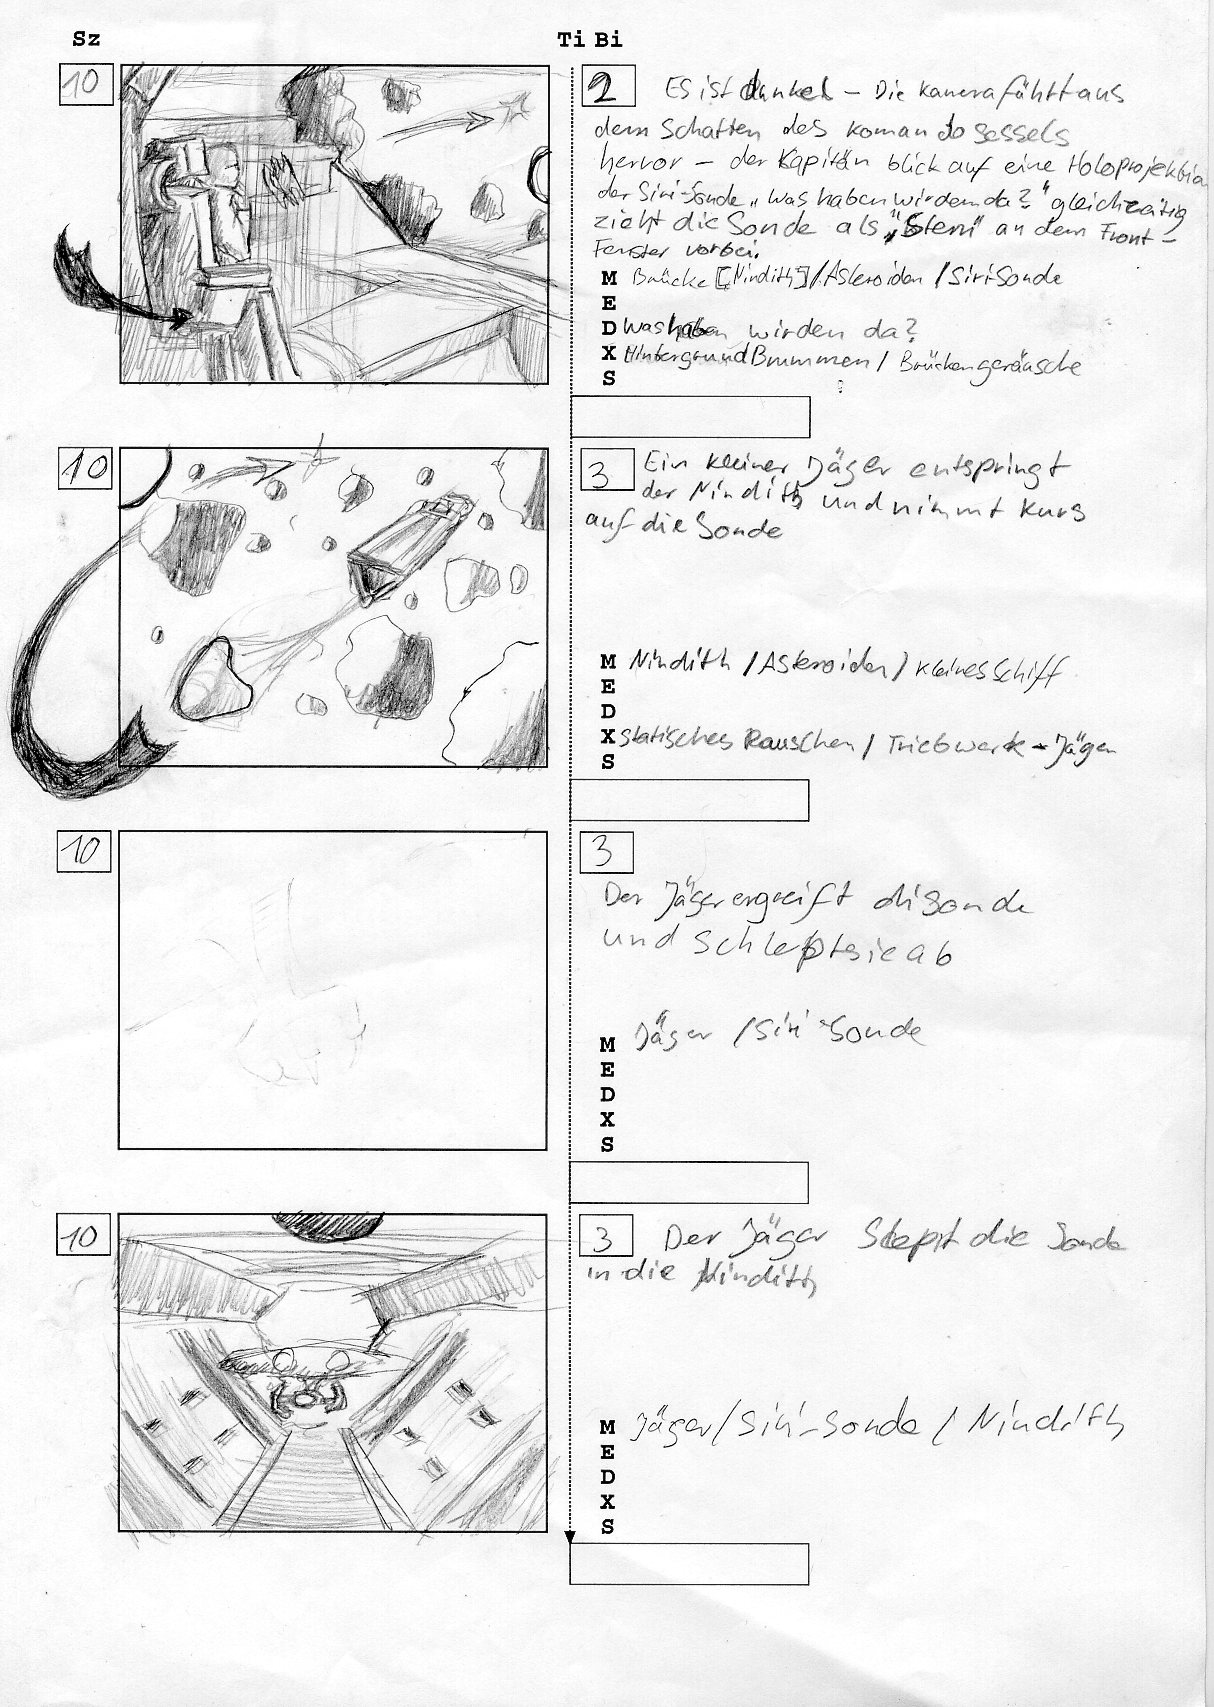 Sz Ti Bi
10
2 Es ist dunkel – Die Kamera fährt aus
dem Schatten des Komandosessels
hervor – der Kapitän blick auf eine Holoprojektion
der Siri-Sonde „Was haben wir denn da?" gleichzeitig
zieht die Sonde als „Stern" an dem Front-
Fenster vorbei.
M Brücke [Nindith] / Asteroiden / Siri Sonde
E
D Was haben wir den da?
X Hintergrund Brummen / Brückengeräusche
S
10
3 Ein kleiner Jäger entspringt
der Nindith und nimmt Kurs
auf die Sonde
M Nindith / Asteroiden / kleines Schiff
E
D
X statisches Rauschen / Triebwerk - Jäger
S
10
3
Der Jäger ergreift di Sonde
und schleptsie ab
M Jäger / Siri-Sonde
E
D
X
S
10
3 Der Jäger Slept die Sonde
in die Nindith
M Jäger / Siri-Sonde / Nindith
E
D
X
S